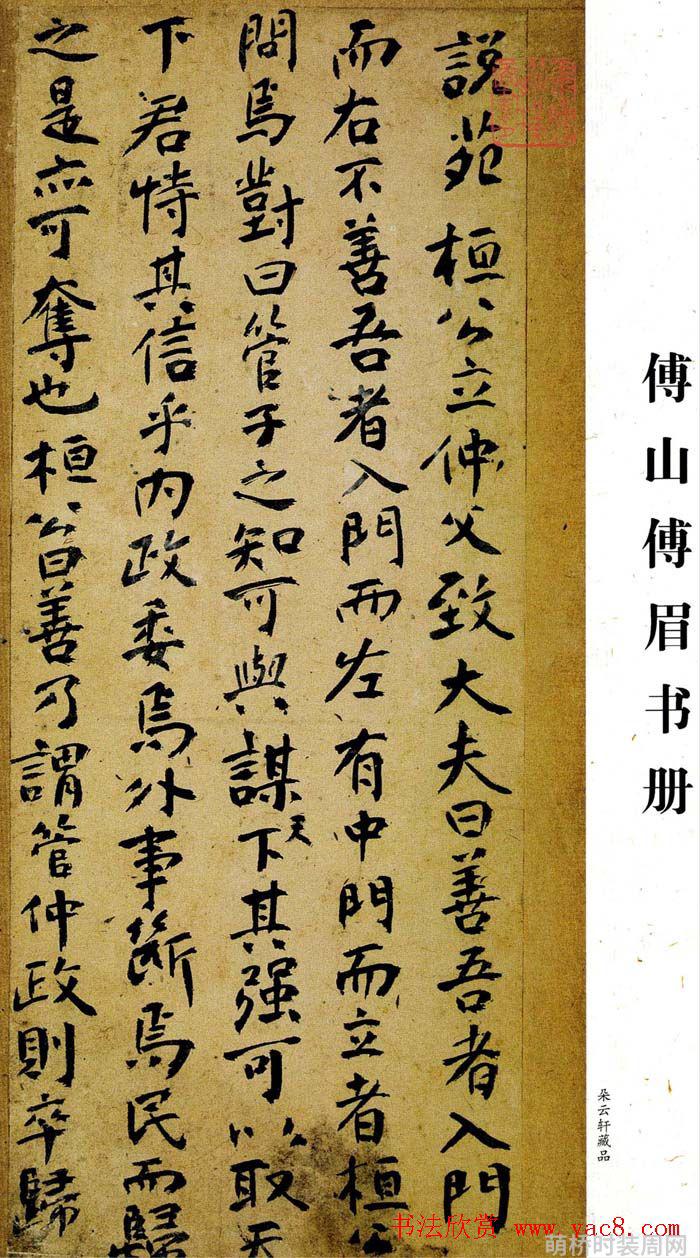 傅山傅眉书册
朵云轩藏品
説苑桓公立仲父致大夫曰善吾者入門
而右不善吾者入門而左有中門而立者桓公
問焉對曰管子之知可與謀天下其强可以取天
下君恃其信乎内政委焉外事斷焉民而歸
之是亦可奪也桓公曰善乃謂管仲政則卒歸
书法欣赏 www.yac8.com
萌桥时装周网